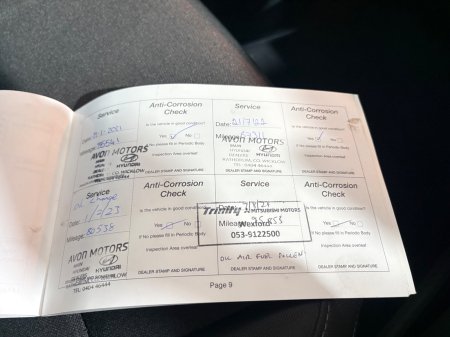 Service
Anti-Corrosion
Check
Service
Anti-Corrosion
Check
Is the vehicle in good condition?
Is the vehicle in good condition?
Date:
Yes No
Yes No
Mileage:
Mileage: 67311
If No please fill in Periodic Body
If No please fill in Periodic Body
Inspection Area overleaf
Inspection Area overleaf
AVON MOTORS
MAIN
HYUNDAI
DEALERS
CO. WICKLOW
TEL: 0404 46444
AVON MOTORS
MAIN
HYUNDAI
DEALERS
RATHDRUM, CO. WICKLOW
TEL: 0404 46444
DEALER STAMP AND SIGNATURE
DEALER STAMP AND SIGNATURE
Service
Anti-Corrosion
Check
Service
Anti-Corrosion
Check
Oil Change
Is the vehicle in good condition?
Is the vehicle in good condition?
1/7/23
Yes No
Mileage: 80538
Mileage:
If No please fill in Periodic Body
If No please fill in Periodic Body
Inspection Area overleaf
Inspection Area overleaf
AVON MOTORS
HYUNDAI
TEL: 0404 46444
Trinity MITSUBISHI MOTORS
Wexford
053-9122500
OIL AIR FUEL POLLEN
DEALER STAMP AND SIGNATURE
DEALER STAMP AND SIGNATURE
DEALER STAMP AND SIGNATURE
Page 9